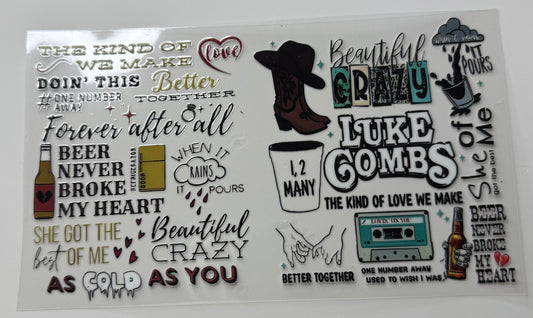 THE KIND OF
WE MAKE
love
DOIN' THIS
Better
TOGETHER
#ONE NUMBER
AWAY
Forever after all
BEER
NEVER
BROKE
MY HEART
REFRIGERATOR
DOOR
WHEN IT
RAINS
IT POURS
SHE GOT THE
best OF ME
Beautiful
CRAZY
AS COLD AS YOU
Beautiful
CRAZY
when it rains
IT
POURS
LUKE
COMBS
1, 2
MANY
THE KIND OF LOVE WE MAKE
She
got the best
of Me
BETTER TOGETHER
LOVIN' ON YOU
ONE NUMBER AWAY
USED TO WISH I WAS
BEER
NEVER
BROKE
MY
HEART